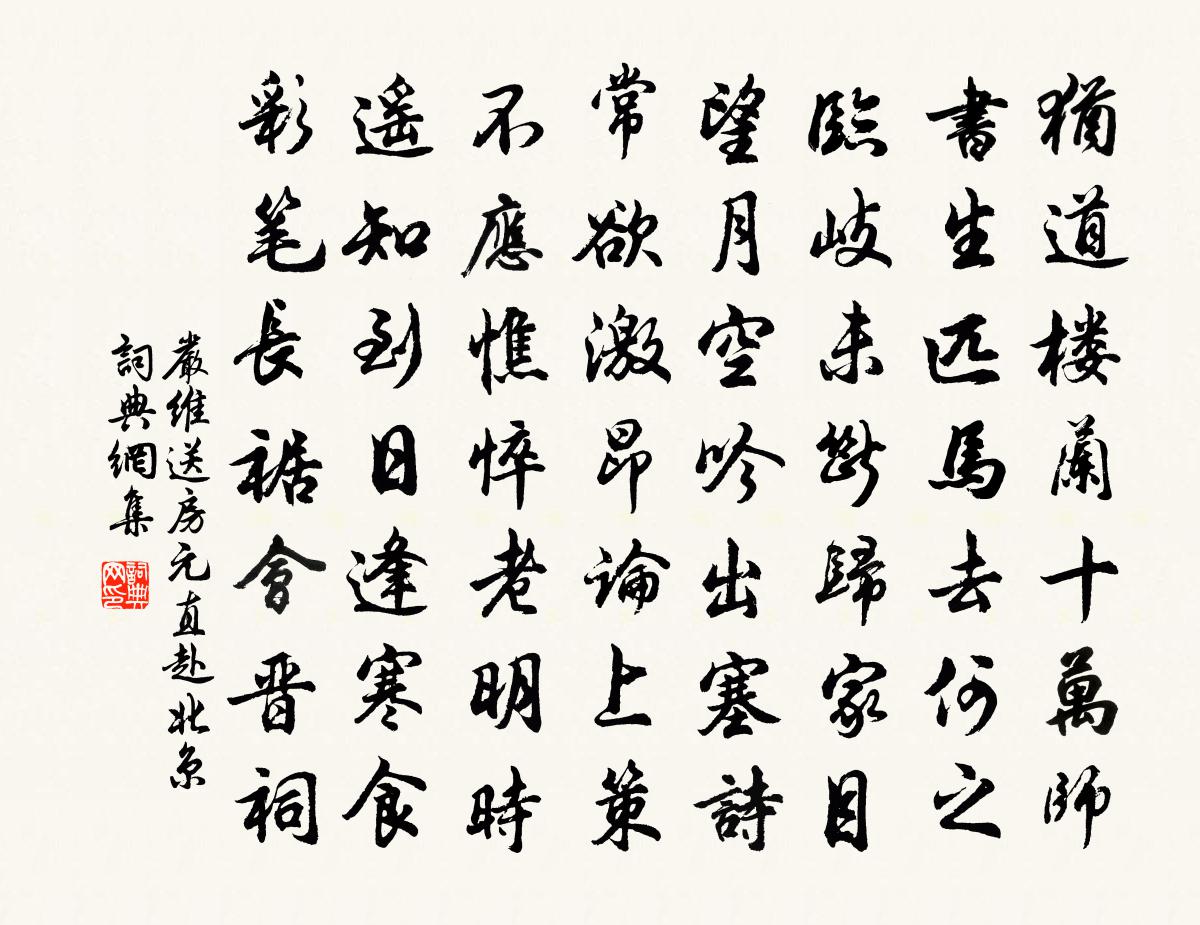 猶道楼蘭十萬師
書生匹馬去何之
臨岐未断歸家目
望月空吟出塞詩
常欲激昂論上策
不應憔悴老明時
遥知到日逢寒食
彩笔長裾會晋祠
嚴維送房元直赴北京
詞典網集
詞典网印